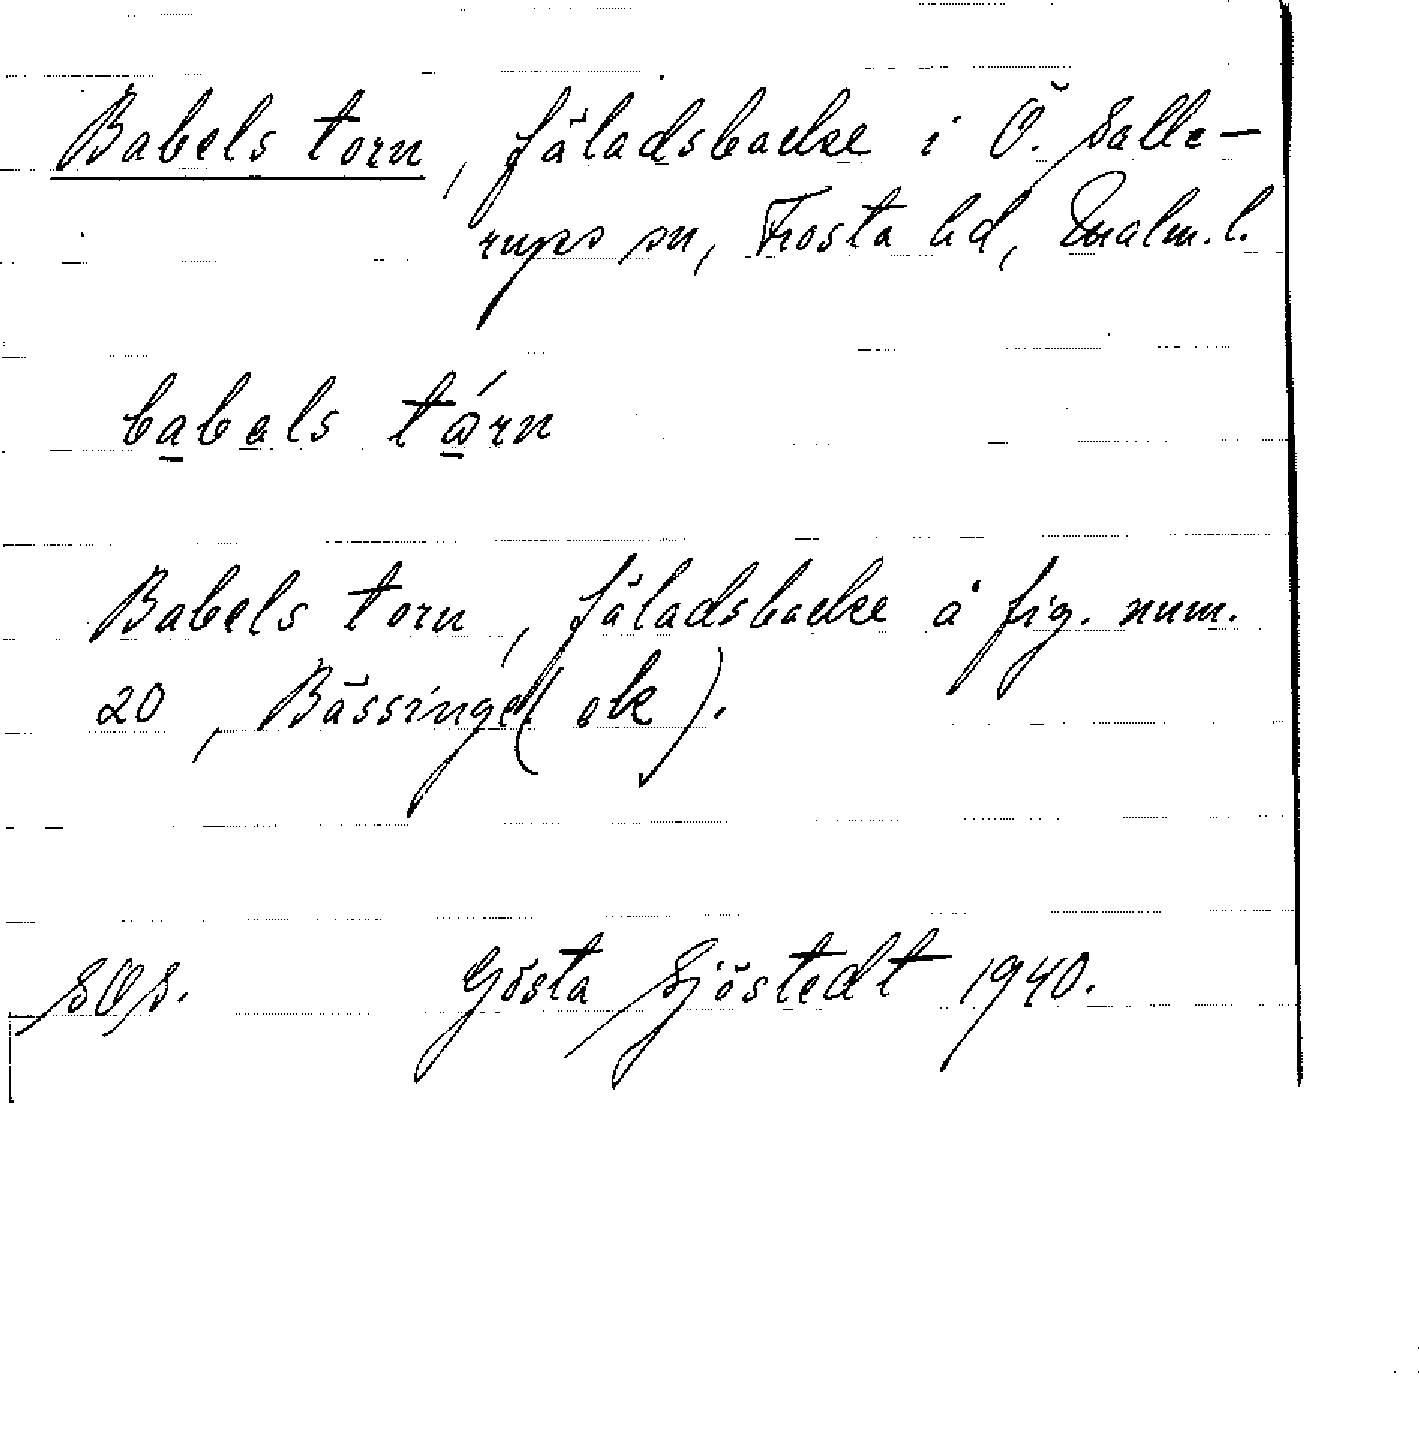 Babels torn, fäladsbacke i Ö. Salle-
rups sn, Frosta hd, Malm. l.
babəls tårn
Babels torn, fäladsbacke å fig. num.
20, Bässinge( ek ).
SOS. Gösta Sjöstedt 1940.